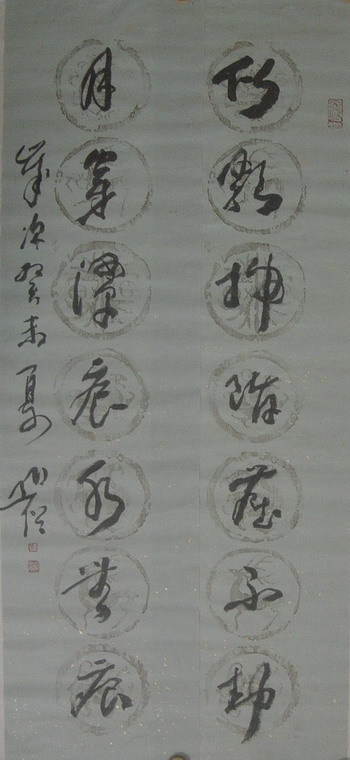 竹影掃階塵不動
月穿潭底水無痕
歲次癸未夏